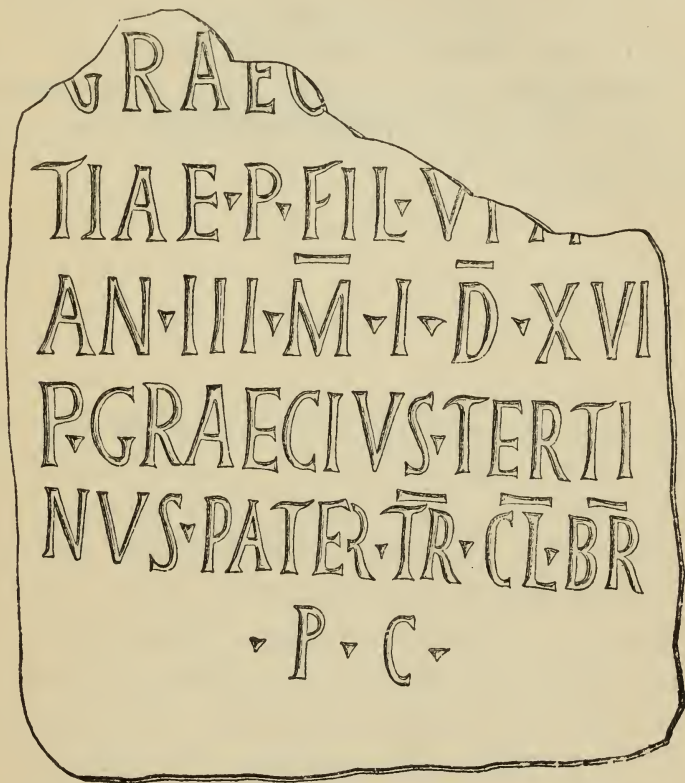 GRAEC
TIAE·P·FIL·
AN·III·M̄·I·D̄·XVI
P·GRAECIVS·TERTI
NVS·PATER·T̄R̄·C̄L̄·BR̄
·P·C·